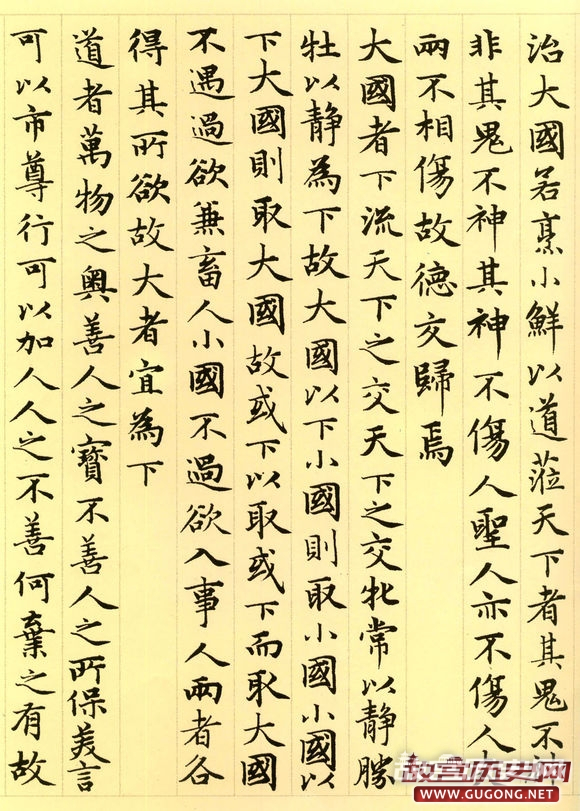 治大國若烹小鮮以道蒞天下者其鬼不神
非其鬼不神其神不傷人聖人亦不傷人
兩不相傷故德交歸焉
大國者下流天下之交天下之交牝常以靜勝
牡以靜為下故大國以下小國則取小國小國以
下大國則取大國故或下以取或下而取大國
不遇過欲兼畜人小國不過欲入事人兩者各
得其所欲故大者宜為下
道者萬物之奧善人之寶不善人之所保美言
可以市尊行可以加人人之不善何棄之有故
故宫历史网
WWW.GUGONG.NET